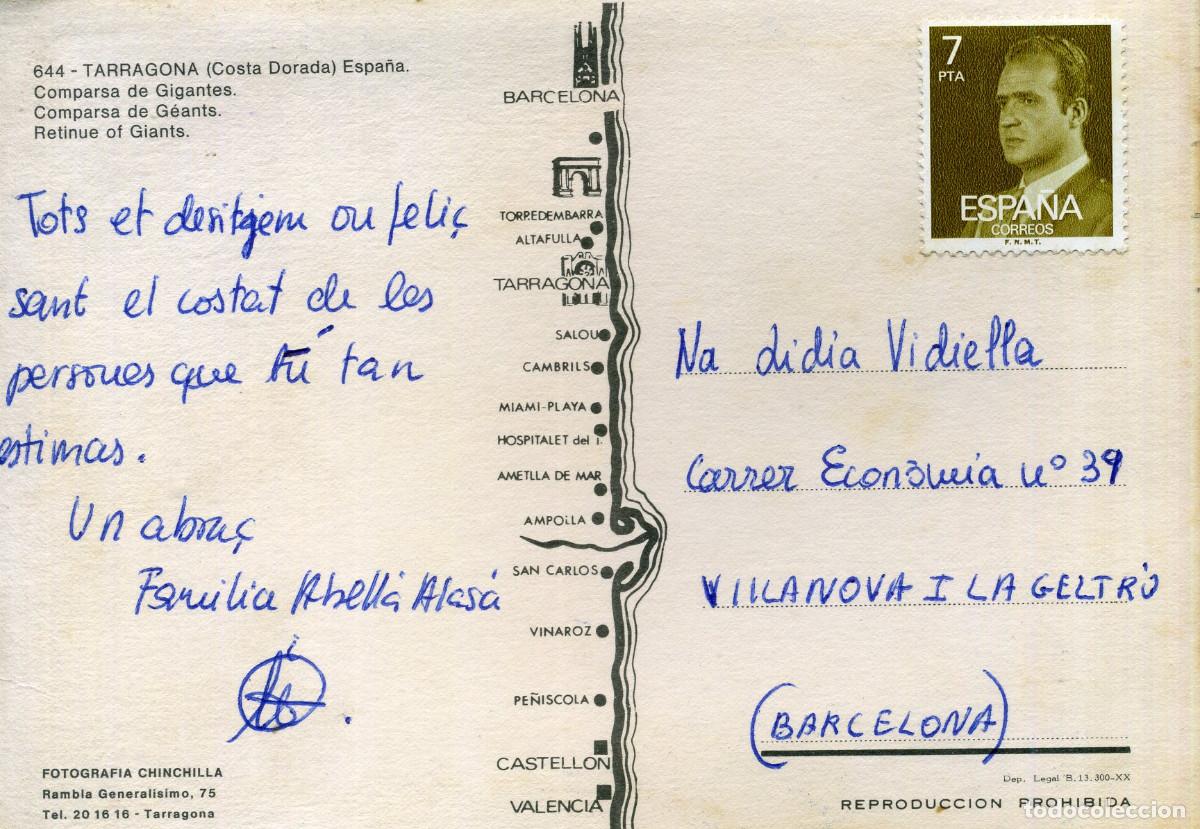 644 - TARRAGONA (Costa Dorada) España.
Comparsa de Gigantes.
Comparsa de Géants.
Retinue of Giants.
Tots et desitgem ou feliç
sant el costat de les
persones que tú tan
estimas.
Un abraç
Familia Abellá Alasá
FOTOGRAFIA CHINCHILLA
Rambla Generalísimo, 75
Tel. 20 16 16 - Tarragona
BARCELONA
TORREDEMBARRA
ALTAFULLA
TARRAGONA
SALOU
CAMBRILS
MIAMI-PLAYA
HOSPITALET del I.
AMETLLA DE MAR
AMPOLLA
SAN CARLOS
VINAROZ
PEÑISCOLA
CASTELLON
VALENCIA
7
PTA
ESPAÑA
CORREOS
F.N.M.T.
Na Lidia Vidiella
Carrer Economia nº 39
VILLANOVA I LA GELTRÙ
(BARCELONA)
Dep. Legal B. 13.300-XX
REPRODUCCION PROHIBIDA
todocoleccion